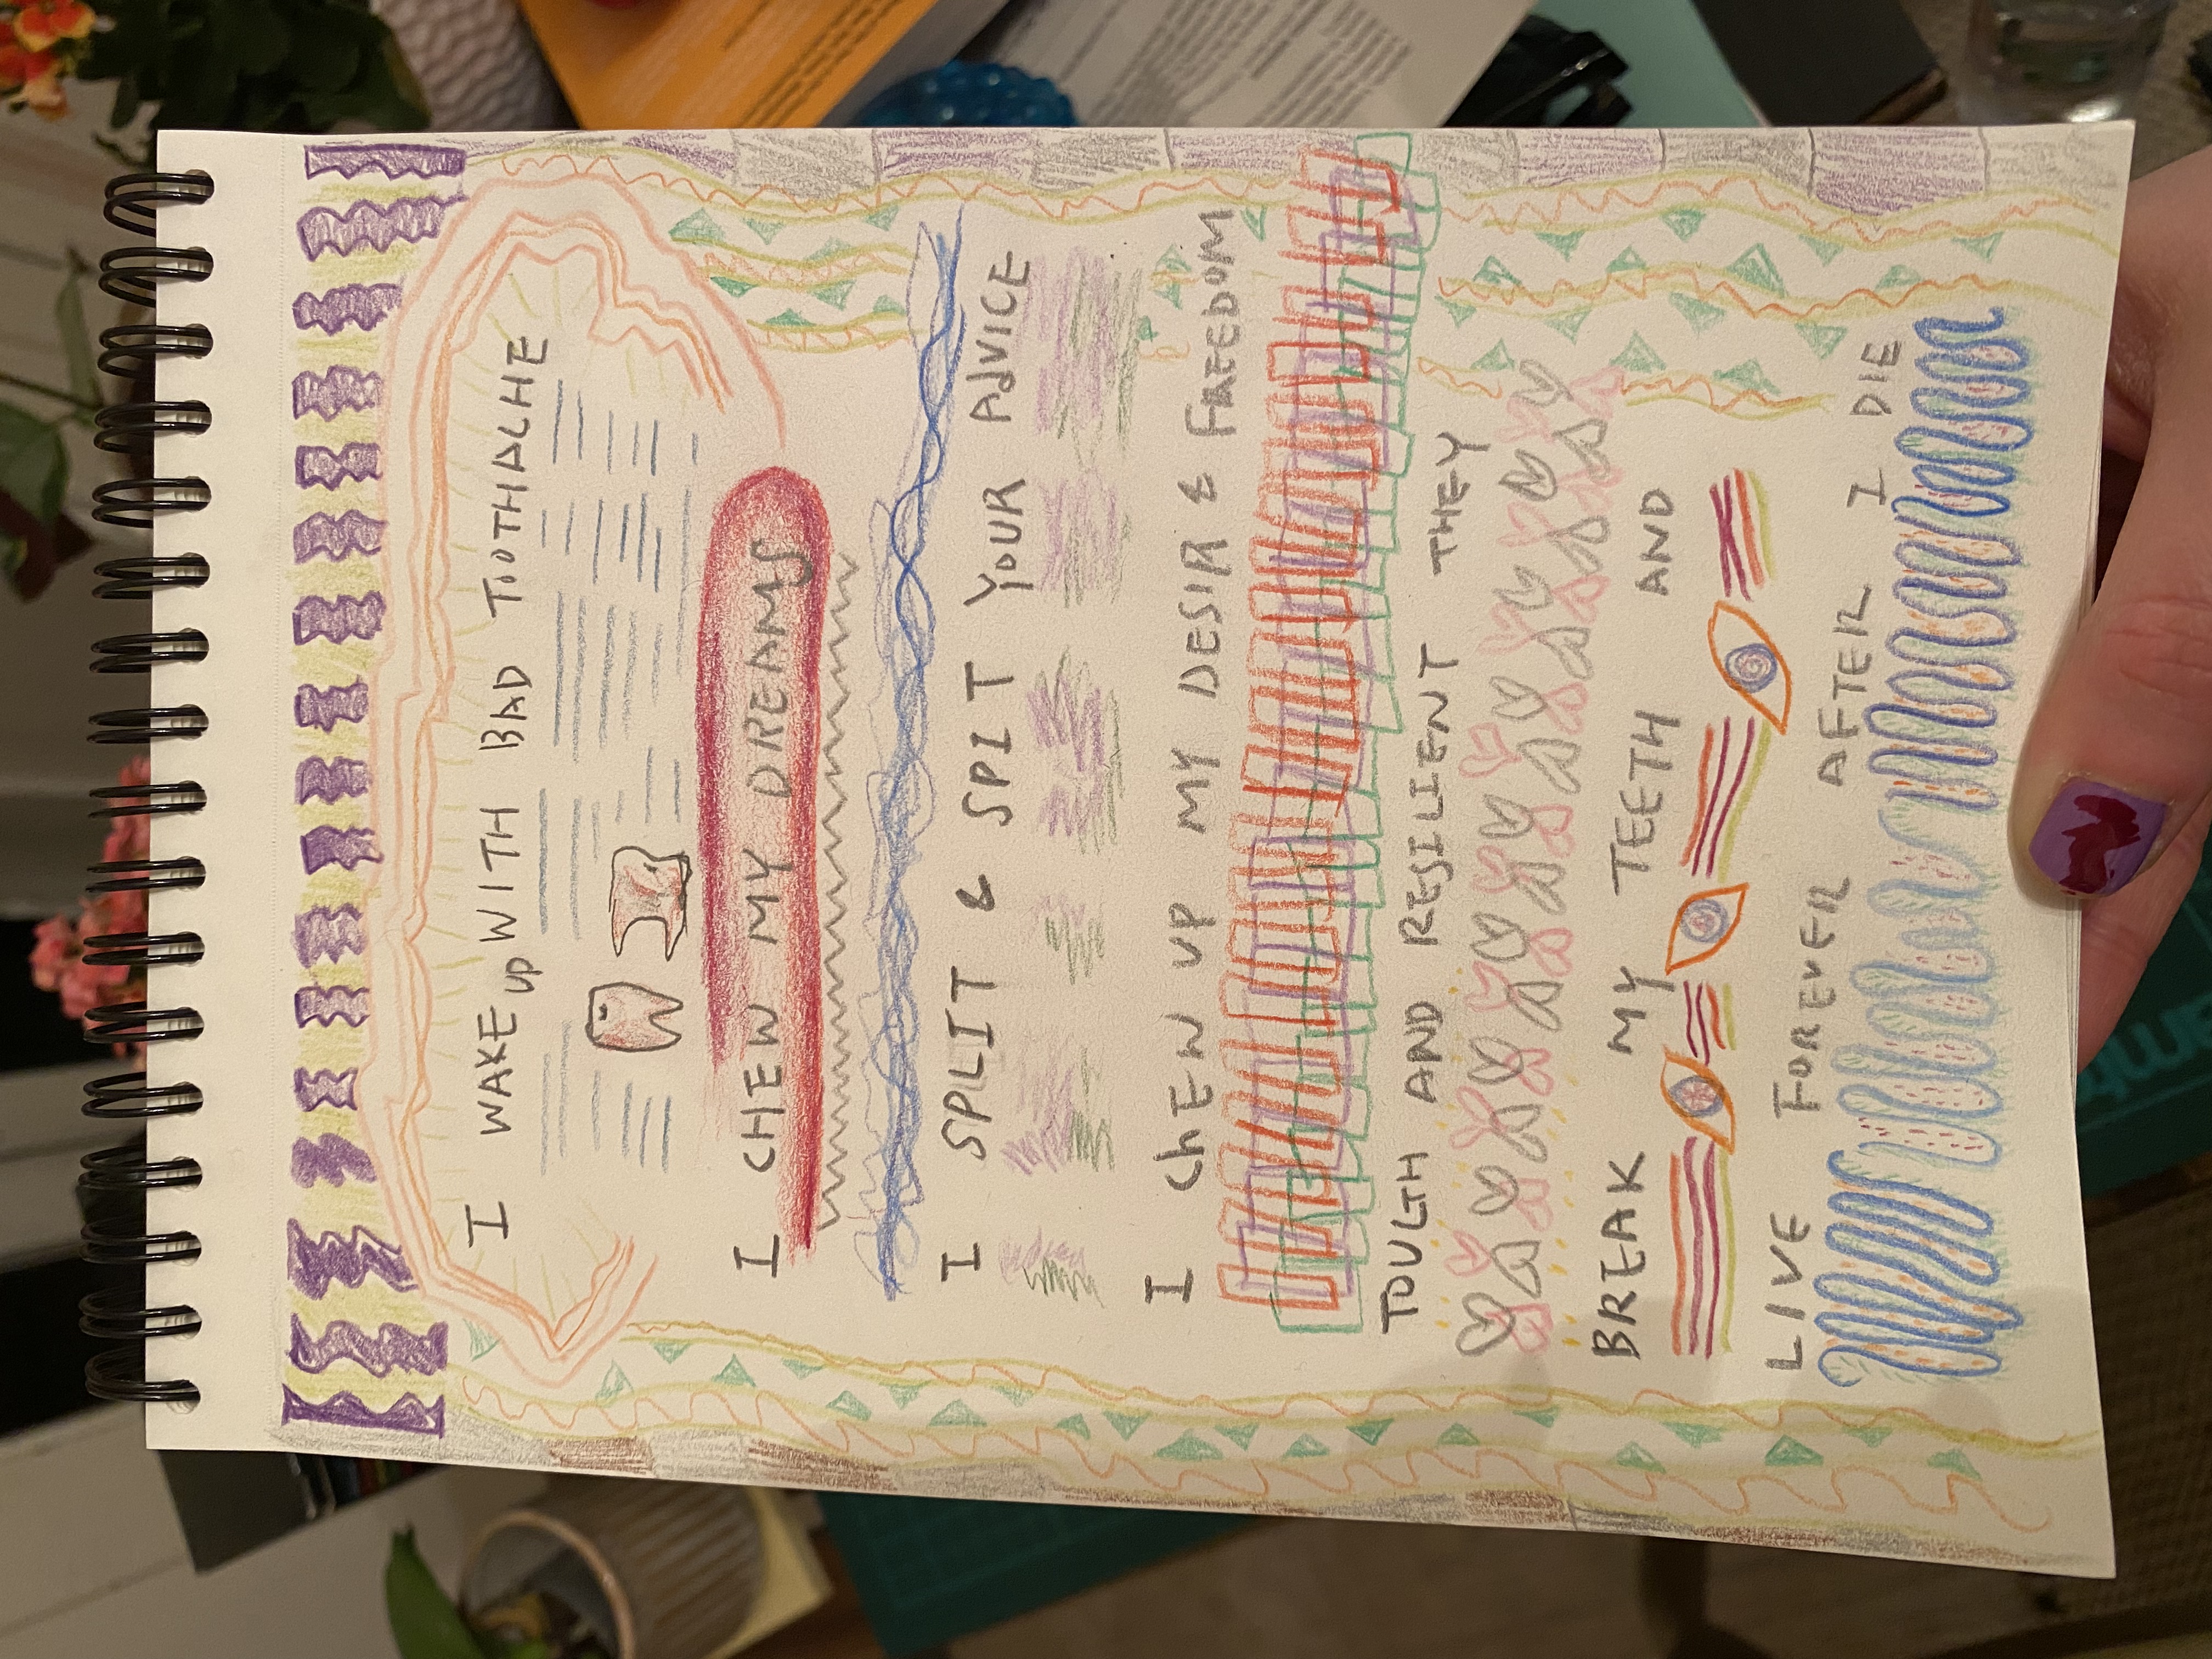 I WAKE UP WITH BAD TOOTHACHE
I CHEW MY DREAMS
I SPLIT & SPIT YOUR ADVICE
I CHEW UP MY DESIR & FREEDOM
TOUGH AND RESILIENT THEY
BREAK MY TEETH AND
LIVE FOREVER AFTER I DIE